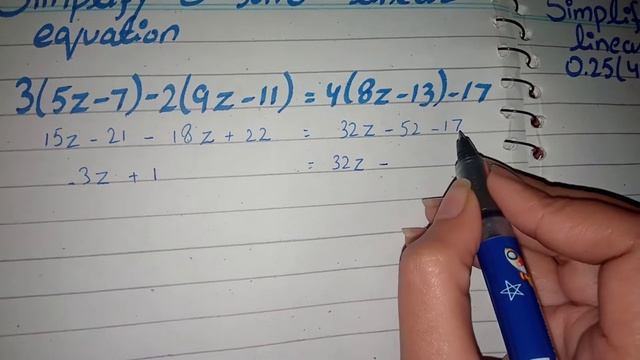 Simplify & solve linear
equation
3(5z-7)-2(9z-11)=4(8z-13)-17
15z - 21 - 18z + 22 = 32z - 52 - 17
-3z + 1 = 32z -
Simplify
linear
0.25(4